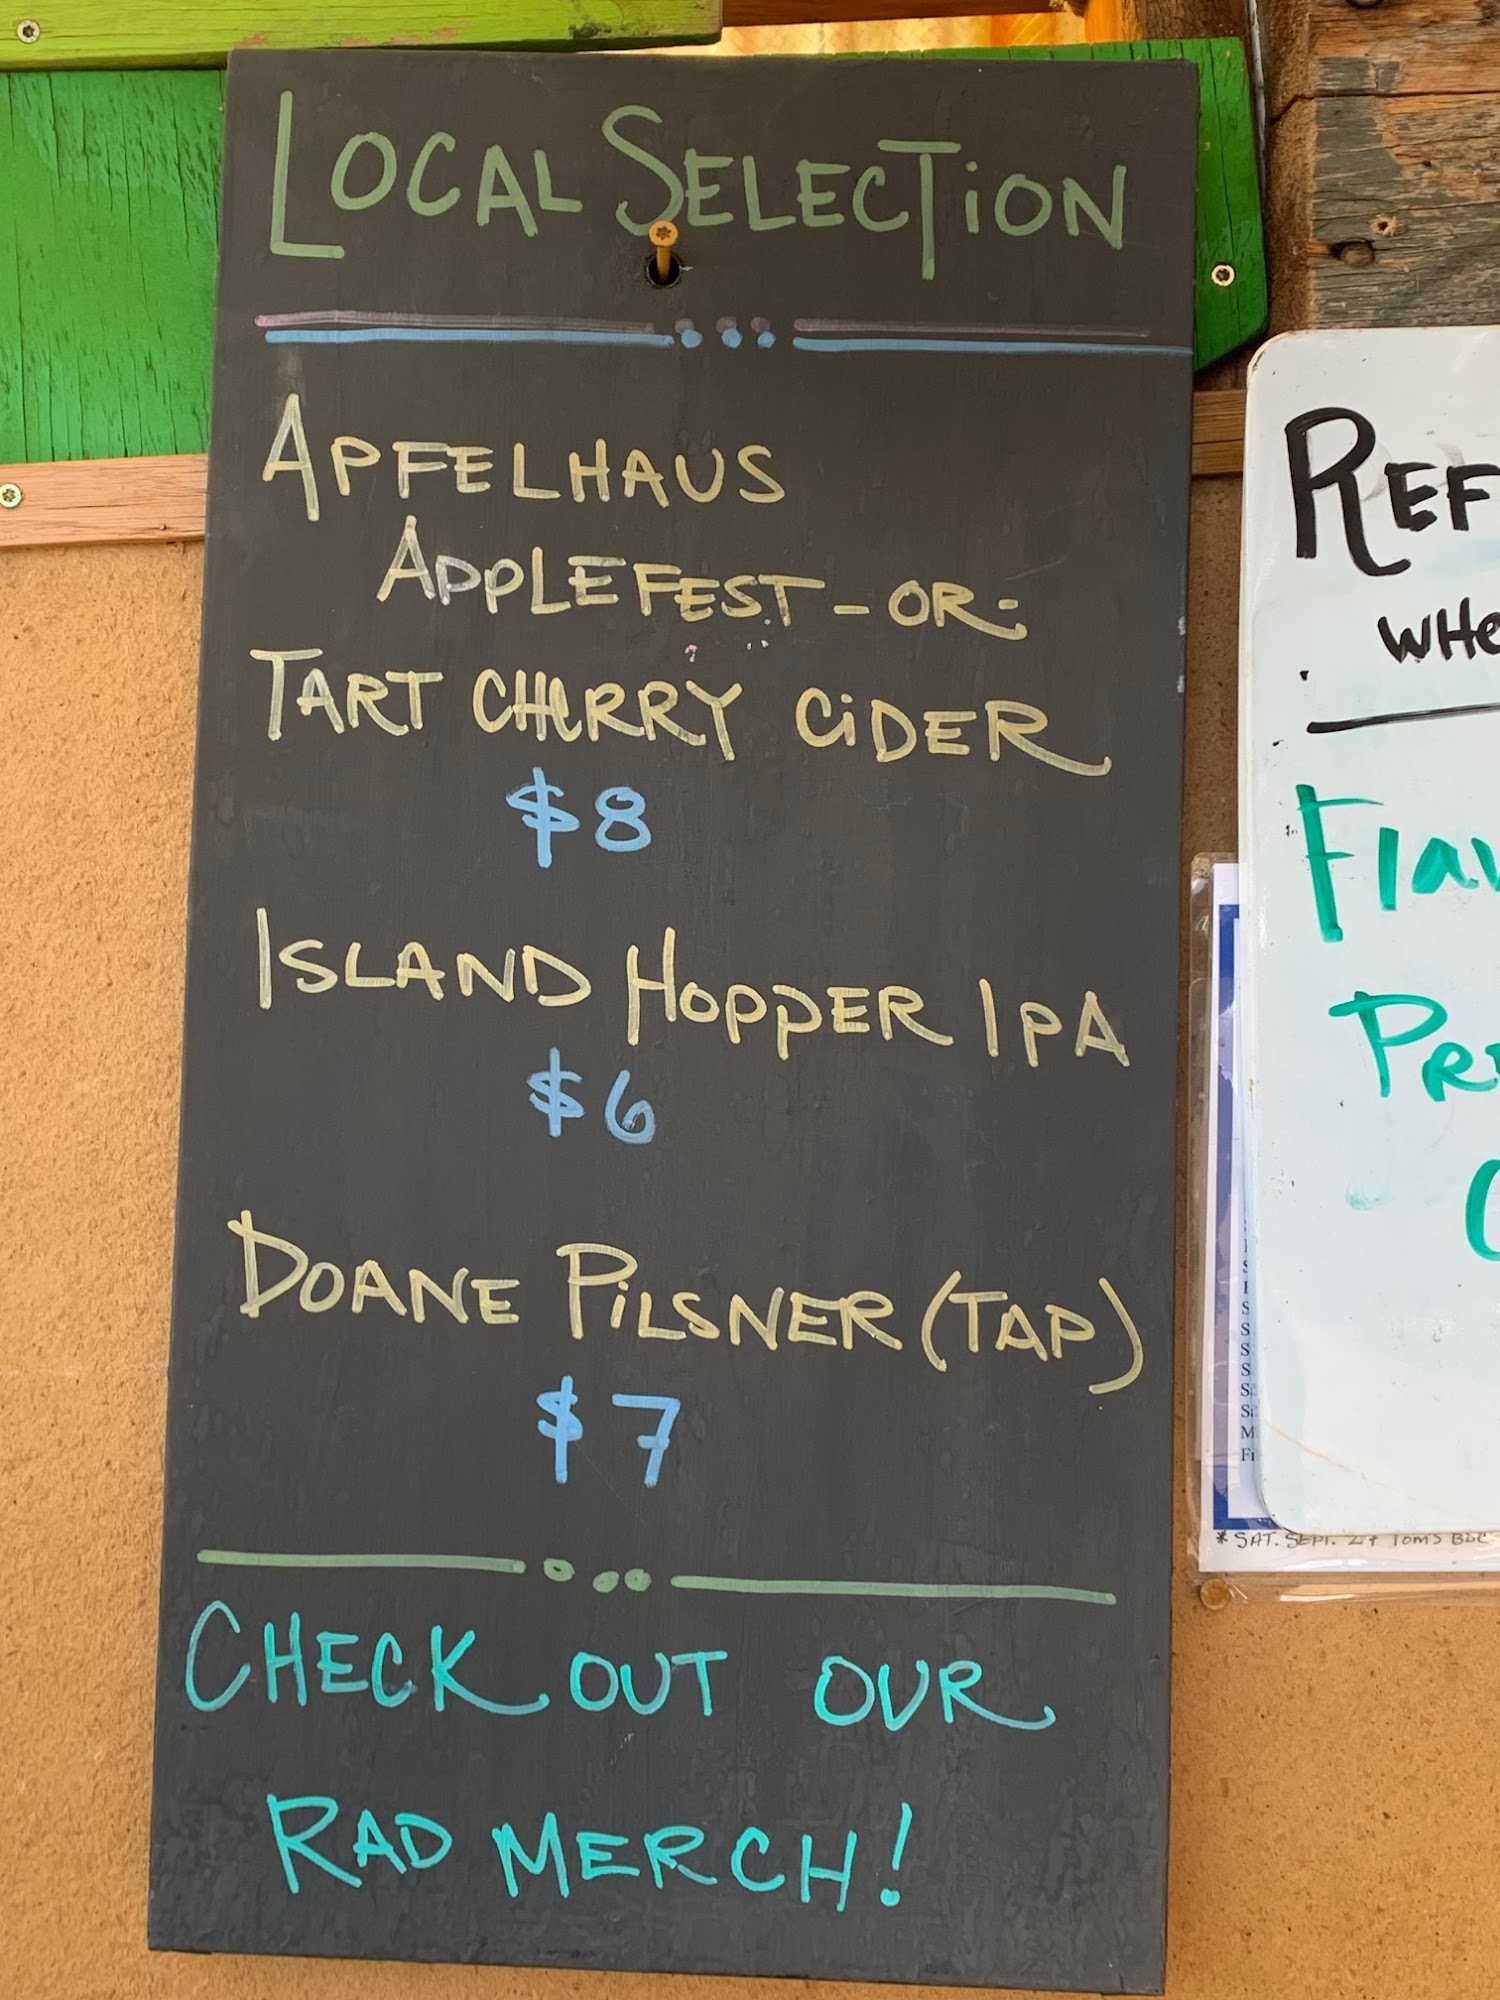 LOCAL SELECTION
APFELHAUS
APPLEFEST - OR -
TART CHERRY CIDER
$8
ISLAND HOPPER IPA
$6
DOANE PILSNER (TAP)
$7
CHECK OUT OUR
RAD MERCH!
REF
WHE
Flav
PRE
* SAT. SEPT.